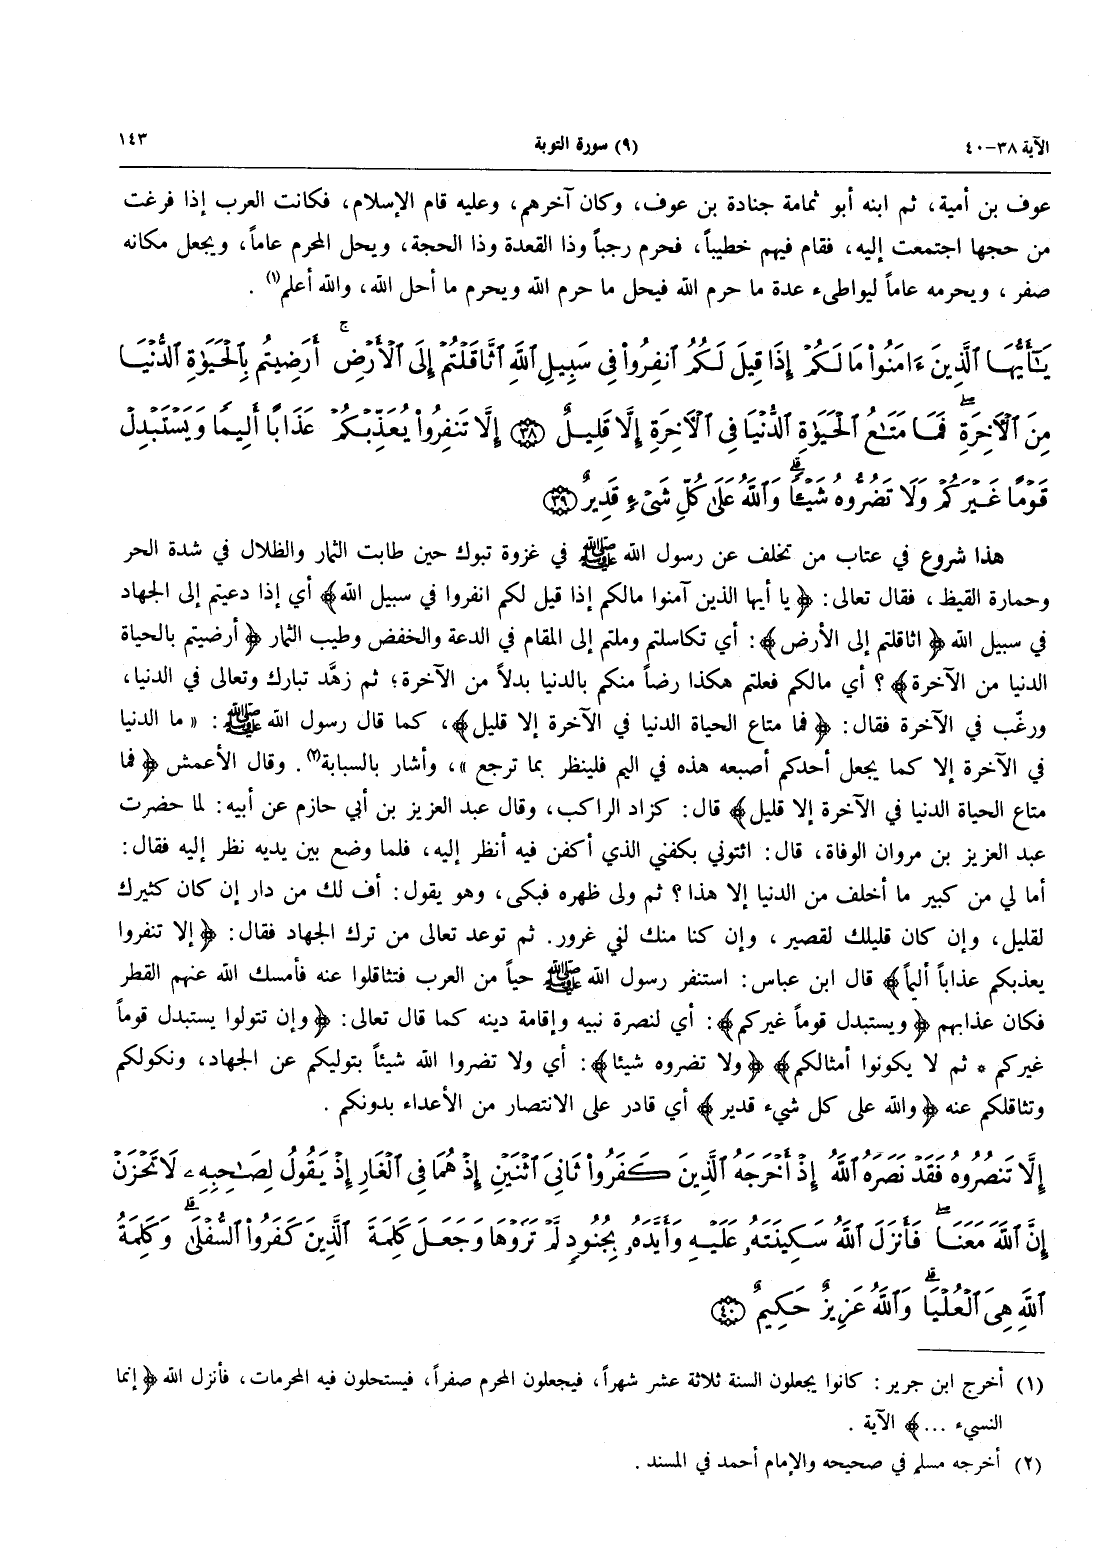 الآية ٣٨-٤٠
(٩) سورة التوبة
١٤٣
عوف بن أمية، ثم ابنه أبو ثمامة جنادة بن عوف، وكان آخرهم، وعليه قام الإسلام، فكانت العرب إذا فرغت
من حجها اجتمعت إليه، فقام فيهم خطيباً، فحرم رجباً وذا القعدة وذا الحجة، ويحل المحرم عاماً، ويجعل مكانه
صفر، ويحرمه عاماً ليواطىء عدة ما حرم الله فيحل ما حرم الله ويحرم ما أحل الله، والله أعلم(١) .
يَـٰٓأَيُّهَا ٱلَّذِينَ ءَامَنُوا۟ مَا لَكُمْ إِذَا قِيلَ لَكُمُ ٱنفِرُوا۟ فِى سَبِيلِ ٱللَّهِ ٱثَّاقَلْتُمْ إِلَى ٱلْأَرْضِ ۚ أَرَضِيتُم بِٱلْحَيَوٰةِ ٱلدُّنْيَا
مِنَ ٱلْـَٔاخِرَةِ ۖ فَمَا مَتَـٰعُ ٱلْحَيَوٰةِ ٱلدُّنْيَا فِى ٱلْـَٔاخِرَةِ إِلَّا قَلِيلٌ ۝٣٨ إِلَّا تَنفِرُوا۟ يُعَذِّبْكُمْ عَذَابًا أَلِيمًا وَيَسْتَبْدِلْ
قَوْمًا غَيْرَكُمْ وَلَا تَضُرُّوهُ شَيْـًٔا ۗ وَٱللَّهُ عَلَىٰ كُلِّ شَىْءٍ قَدِيرٌ ۝٣٩
هذا شروع في عتاب من تخلف عن رسول الله ﷺ في غزوة تبوك حين طابت الثمار والظلال في شدة الحر
وحمارة القيظ، فقال تعالى: ﴿يا أيها الذين آمنوا مالكم إذا قيل لكم انفروا في سبيل الله﴾ أي إذا دعيتم إلى الجهاد
في سبيل الله ﴿اثاقلتم إلى الأرض﴾: أي تكاسلتم وملتم إلى المقام في الدعة والخفض وطيب الثمار ﴿أرضيتم بالحياة
الدنيا من الآخرة﴾؟ أي مالكم فعلتم هكذا رضاً منكم بالدنيا بدلاً من الآخرة؛ ثم زهَّد تبارك وتعالى في الدنيا،
ورغّب في الآخرة فقال: ﴿فما متاع الحياة الدنيا في الآخرة إلا قليل﴾، كما قال رسول الله ﷺ: «ما الدنيا
في الآخرة إلا كما يجعل أحدكم أصبعه هذه في اليم فلينظر بما ترجع»، وأشار بالسبابة(٢). وقال الأعمش ﴿فما
متاع الحياة الدنيا في الآخرة إلا قليل﴾ قال: كزاد الراكب، وقال عبد العزيز بن أبي حازم عن أبيه: لما حضرت
عبد العزيز بن مروان الوفاة، قال: ائتوني بكفني الذي أكفن فيه أنظر إليه، فلما وضع بين يديه نظر إليه فقال:
أما لي من كبير ما أخلف من الدنيا إلا هذا؟ ثم ولى ظهره فبكى، وهو يقول: أف لك من دار إن كان كثيرك
لقليل، وإن كان قليلك لقصير، وإن كنا منك لفي غرور. ثم توعد تعالى من ترك الجهاد فقال: ﴿إلا تنفروا
يعذبكم عذاباً أليماً﴾ قال ابن عباس: استنفر رسول الله ﷺ حياً من العرب فتثاقلوا عنه فأمسك الله عنهم القطر
فكان عذابهم ﴿ويستبدل قوماً غيركم﴾: أي لنصرة نبيه وإقامة دينه كما قال تعالى: ﴿وإن تتولوا يستبدل قوماً
غيركم * ثم لا يكونوا أمثالكم﴾ ﴿ولا تضروه شيئا﴾: أي ولا تضروا الله شيئاً بتوليكم عن الجهاد، ونكولكم
وتثاقلكم عنه ﴿والله على كل شيء قدير﴾ أي قادر على الانتصار من الأعداء بدونكم .
إِلَّا تَنصُرُوهُ فَقَدْ نَصَرَهُ ٱللَّهُ إِذْ أَخْرَجَهُ ٱلَّذِينَ كَفَرُوا۟ ثَانِىَ ٱثْنَيْنِ إِذْ هُمَا فِى ٱلْغَارِ إِذْ يَقُولُ لِصَـٰحِبِهِۦ لَا تَحْزَنْ
إِنَّ ٱللَّهَ مَعَنَا ۖ فَأَنزَلَ ٱللَّهُ سَكِينَتَهُۥ عَلَيْهِ وَأَيَّدَهُۥ بِجُنُودٍ لَّمْ تَرَوْهَا وَجَعَلَ كَلِمَةَ ٱلَّذِينَ كَفَرُوا۟ ٱلسُّفْلَىٰ ۗ وَكَلِمَةُ
ٱللَّهِ هِىَ ٱلْعُلْيَا ۗ وَٱللَّهُ عَزِيزٌ حَكِيمٌ ۝٤٠
(١) أخرج ابن جرير : كانوا يجعلون السنة ثلاثة عشر شهراً، فيجعلون المحرم صفراً، فيستحلون فيه المحرمات، فأنزل الله ﴿إنما
النسيء ...﴾ الآية .
(٢) أخرجه مسلم في صحيحه والإمام أحمد في المسند .